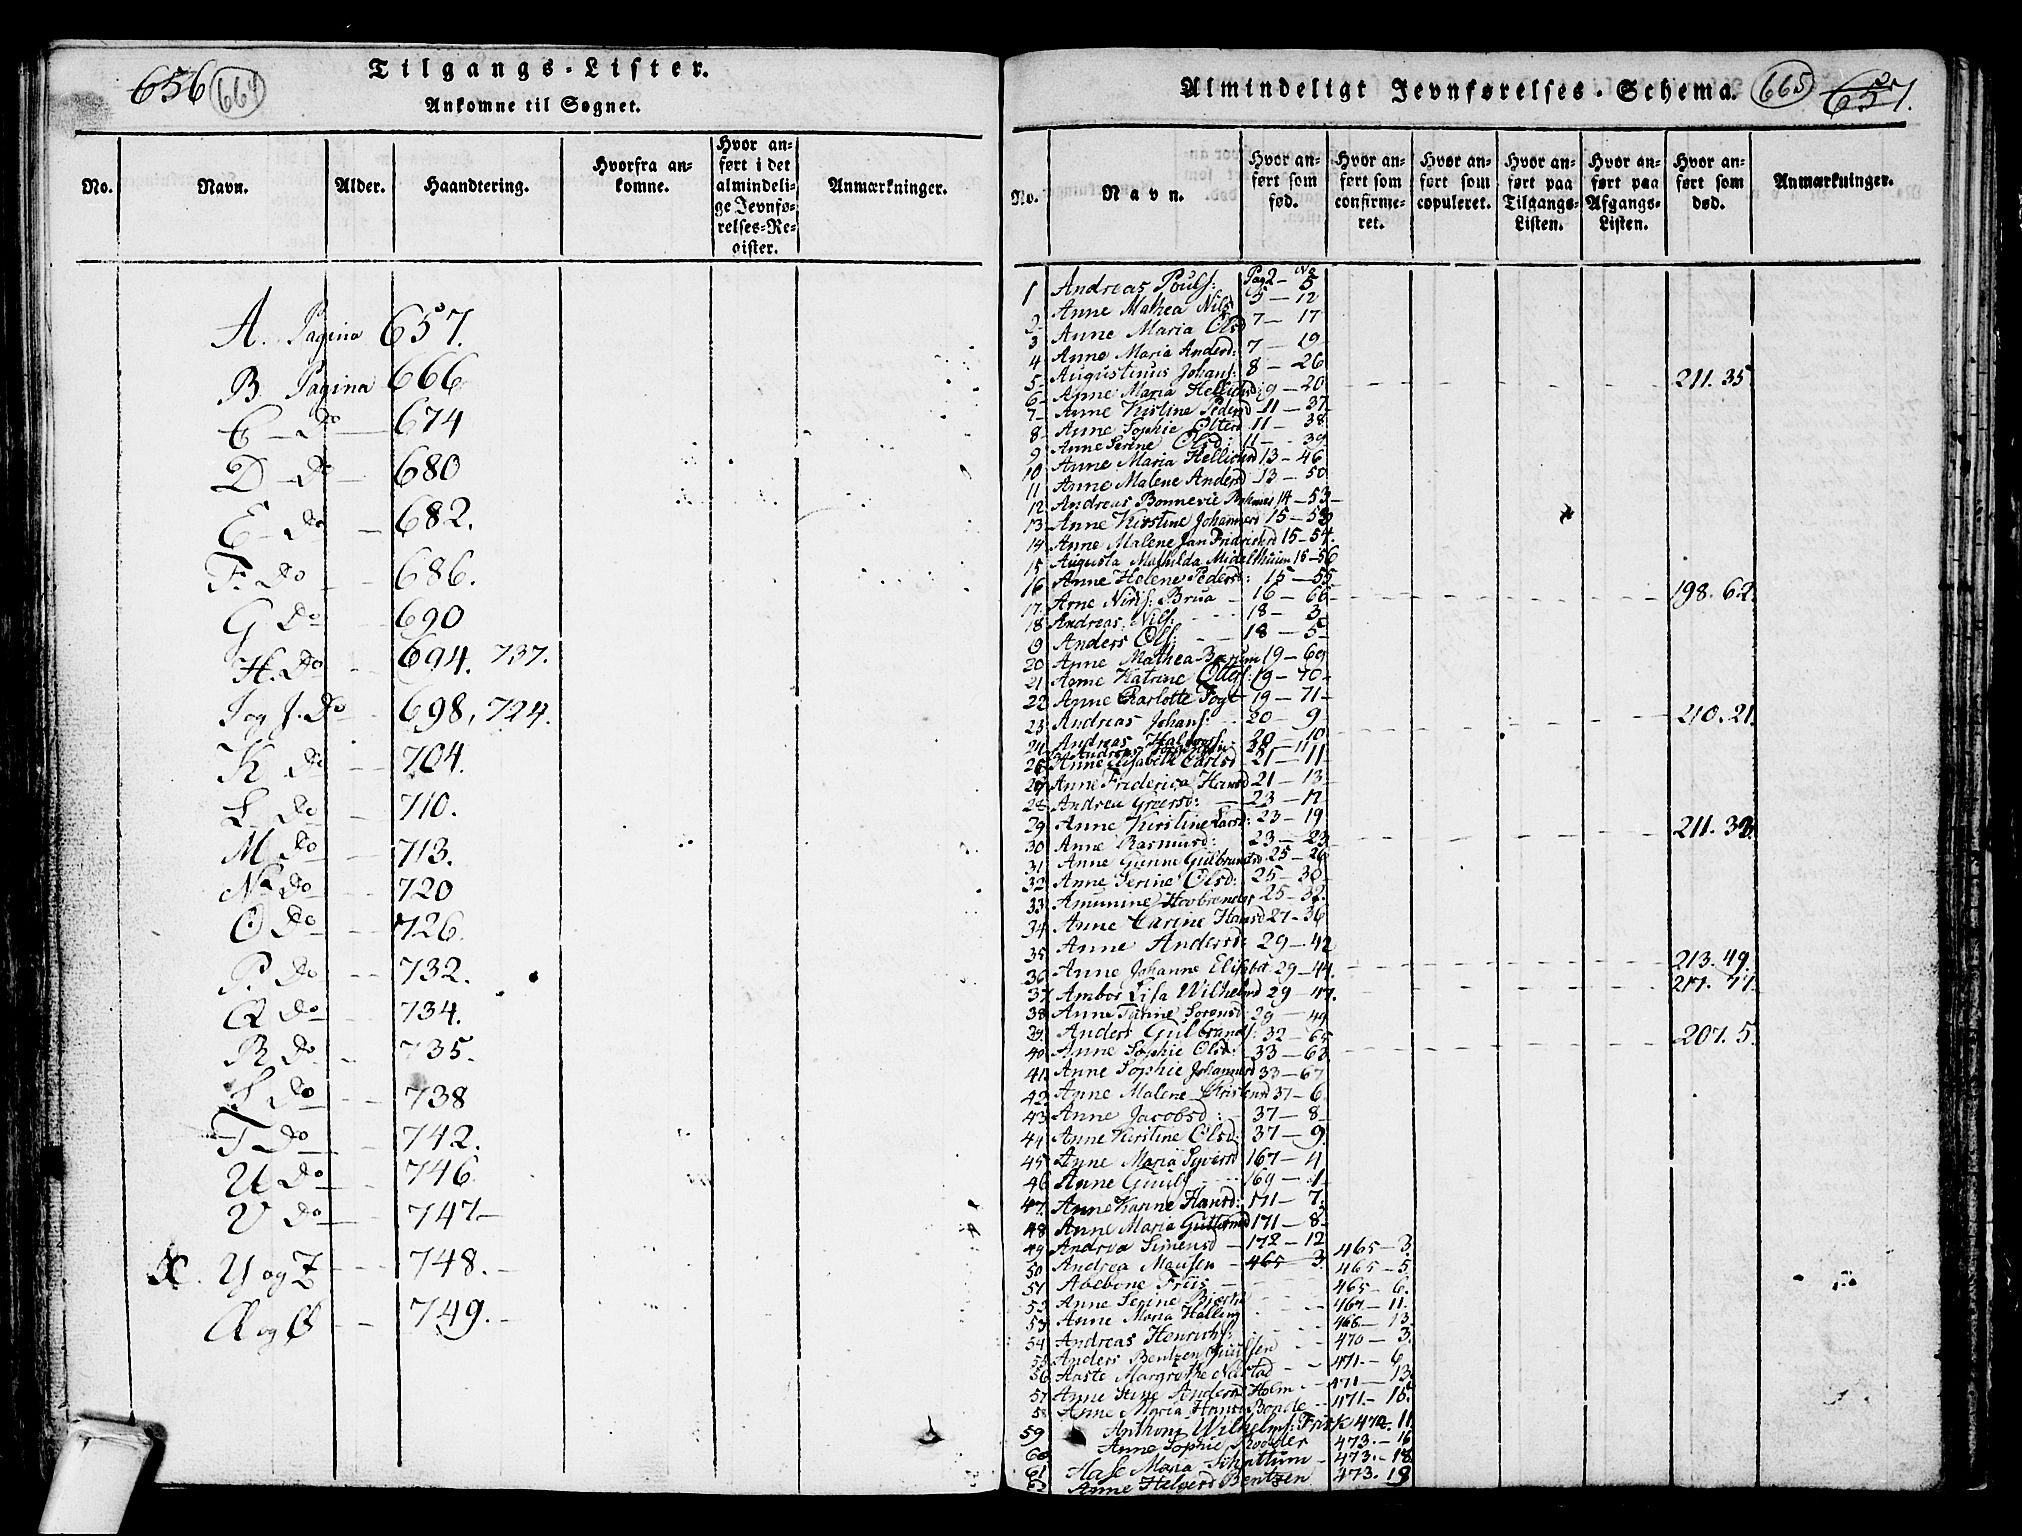 656 664
Tilgangs-Lister.
Ankomne til Sognet.
No. Navn. Alder. Haandtering. Hvorfra an-
komne. Hvor an-
ført i det
almindeli-
ge Jevnfø-
relses-Re-
gister. Anmærkninger.
A. Pagina 657.
B Pagina 666
C - Do 674
D - Do 680
E - Do 682.
F. Do 686.
G Do 690
H. Do 694. 737.
I og J. Do 698, 724.
K Do 704.
L. Do 710.
M Do 713.
N Do 720
O Do 726.
P. Do 732.
Q Do 734.
R Do 735.
S Do 738
T Do 742.
U Do 746
V Do 747
X. Y og Z 748.
Æ og Ø 749.
Almindeligt Jevnførelses-Schema. 665 657.
No. Navn. Hvor an-
ført som
fød. Hvor an-
ført som
confirme-
ret. Hvor an-
ført som
copuleret. Hvor an-
ført paa
Tilgangs-
Listen. Hvor an-
ført paa
Afgangs-
Listen. Hvor an-
ført som
død. Anmærkninger.
1 Andreas Pouls: Pag 2 - No 5
2 Anne Mathea Nilsd 5 - 12
3 Anne Maria Olsd 7 - 17
4 Anne Maria Andersd: 7 - 19
5 Augustinus Johans: 8 - 26 211. 35.
6 Anne Maria 9 - 20
7 Anne Kistine Pedersd 11 - 37
8 Anne Sophie 11 - 38
9 Anne Serine Olsd: 11 - 39
10 Anne Maria 13 - 46
11 Anne Malene Andersd 13 - 50
12 Andreas Bonnevie 14 - 53
13 Anne Kirstine Johannesd 15 - 53
14 Anne Malene Jan 15 - 54.
15 Augusta Mathilda 15 - 56
16 Anne Helene Pedersd: 15 - 55
17 Arne Nirls: Brua 16 - 66 198. 62.
18 Andreas Nils: 18 - 3
19 Anders Ols: 18 - 5
20 Anne Mathea 19 - 69
21 Anne Katrine 19 - 70
22 Anne Charlotte Vogt 19 - 71
23 Andreas Johans: 20 - 9 210. 21.
24 Andreas Halvors: 20 - 10
Andreas 11
26 Anne Elisabeth Carlsd 21 - 11
27 Anne Friderica Hansd 21 - 13
28 Andrea 23 - 17
29 Anne Kirstine Larsd: 23 - 19 211. 33.
30 Anne Rasmusd: 23 - 23
31 Anne Gunne Gulbrandsd 25 - 26
32 Anne Serine Olsd: 25 - 30
33 Amunine 25 - 32.
34 Anne Carine Hansd 27 - 36
35 Anne Andersd: 29 - 42
36 Anne Johanne Elisbet 29 - 44. 213. 49.
37 Ambor Lisa Wilhelmd 29 - 47. 217. 77.
38 Anne Sorensd: 29 - 49
39 Anders Gulbrands: 32 - 65
40 Anne Sophie Olsd: 33 - 62 207. 5.
41 Anne Sophie Johannesd 33 - 67
42 Anne Malene Christensd 37 - 6
43 Anne Jacobsd: 37 - 8
44 Anne Kirstine Olsd: 37 - 9
45 Anne Maria Syversd 167 - 4
46 Anne 169 - 1
47. Anne Karine Hansd: 171 - 7
48 Anne Maria Guttormsd 171 - 8
49 Andrea Simensd 172 - 12
50 Andrea Mausen 465 - 3 465 - 3.
51 Abebone Friis 465 - 5
52 Anne Serine 465 - 6.
53 Anne Maria Halling 467 - 11.
54 Andreas Henrichs: 466 - 13
55 Anders Bentzen 470 - 3
56 Aaste Margrethe 471. - 6
57 Anne Stine Andersd Holm 471 - 13
58 Anne Maria Bonde 471 - 15.
59 Anthony Wilhelms: Frisk 472. 11
60 Anne Sophie 473. - 16
61 Aase Maria 473. - 18
62 Anne Helgesd Bentzen 473. 19